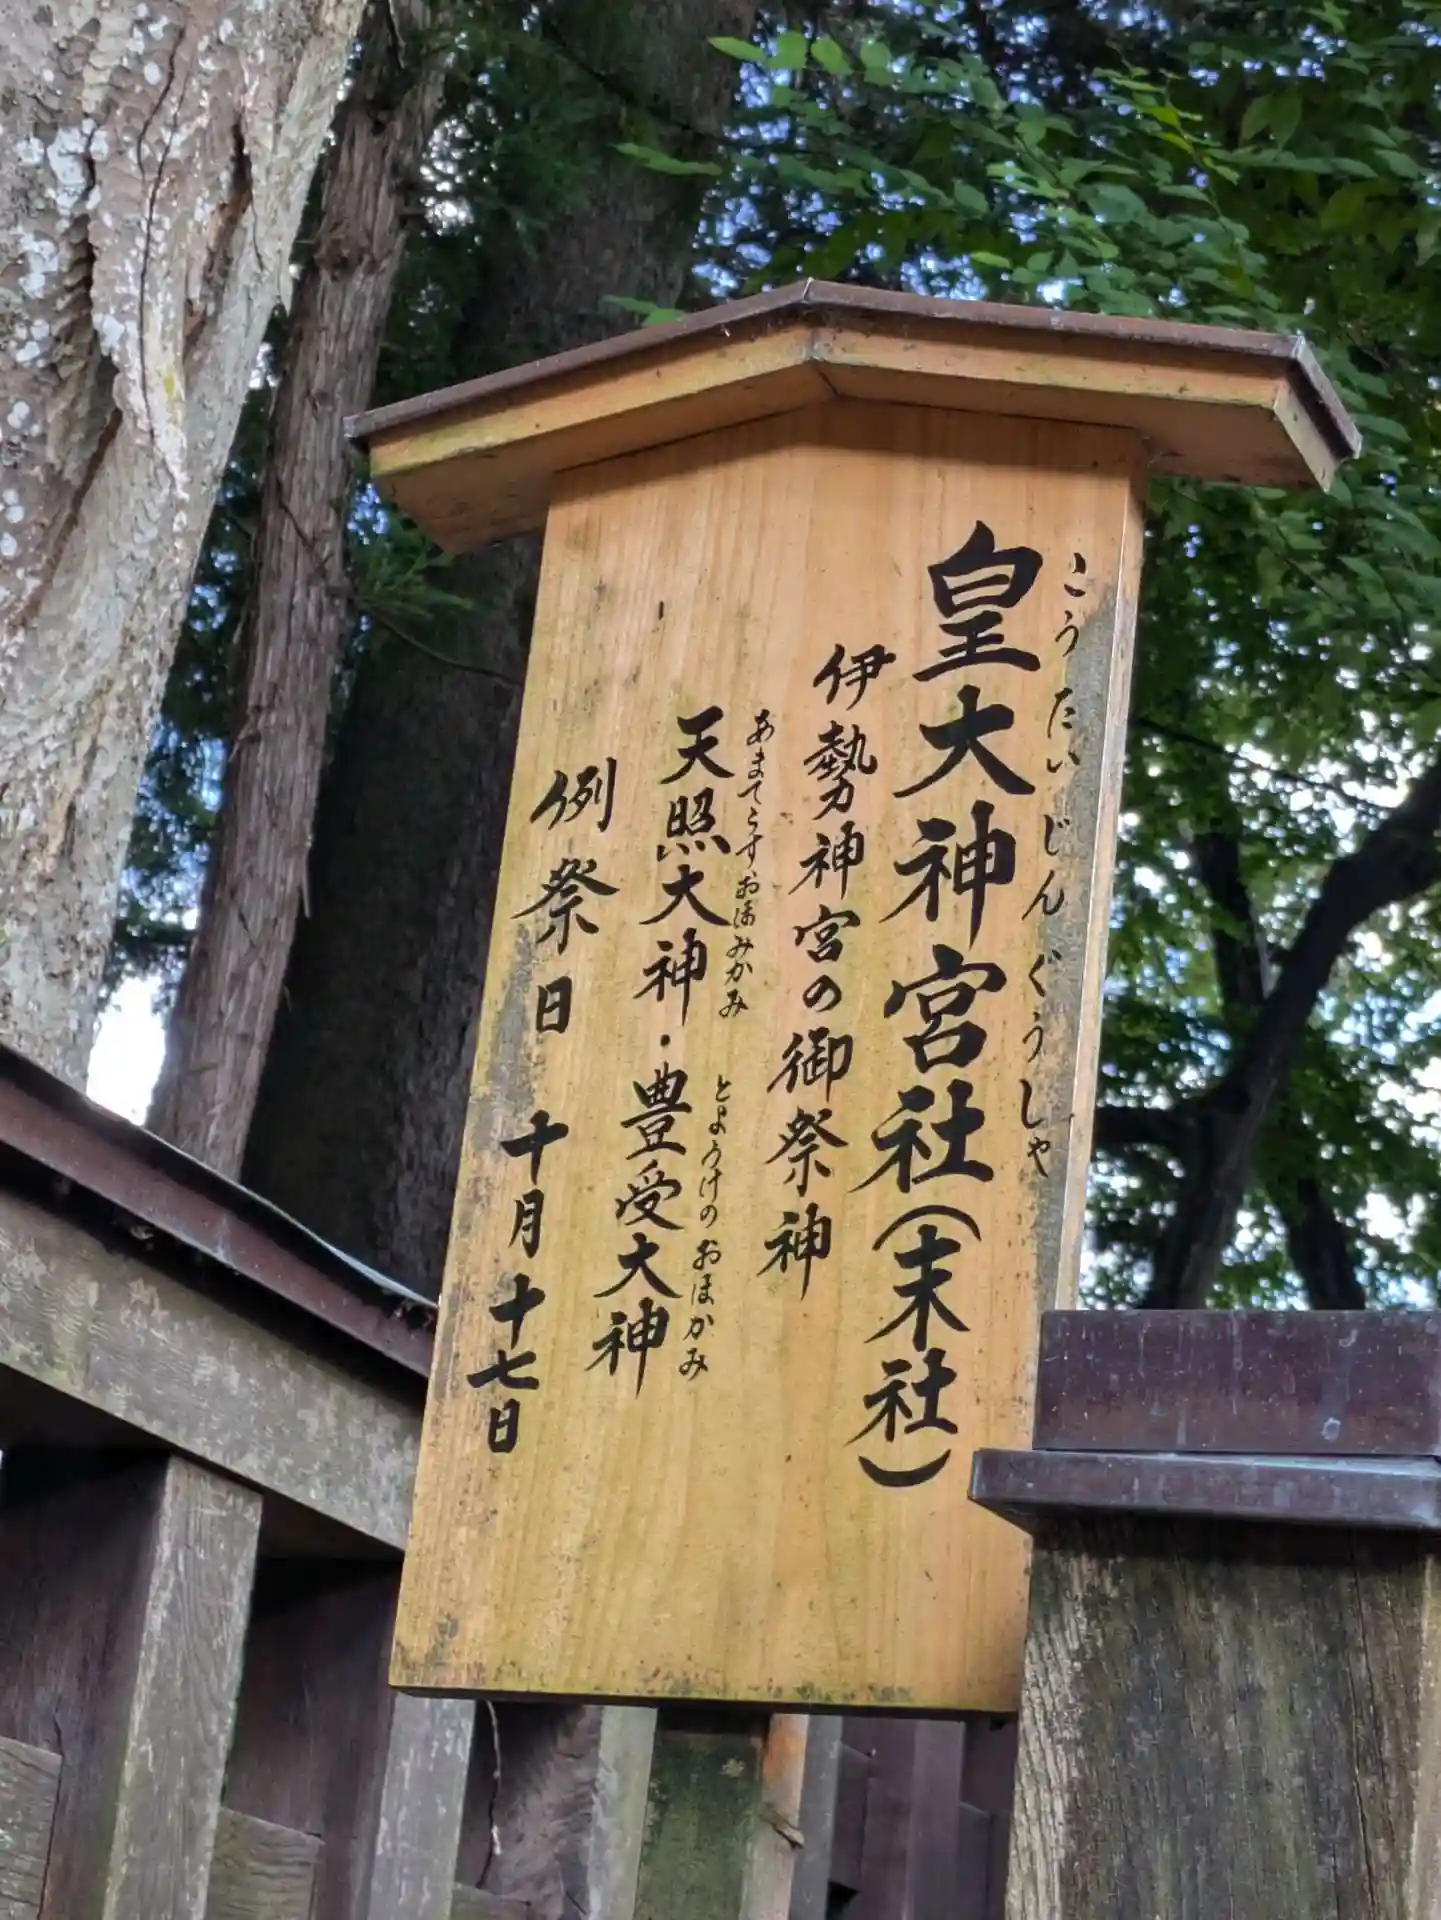 皇大神宮社(末社)
こうたいじんぐうしゃ
伊勢神宮の御祭神
天照大神・豊受大神
あまてらすおほみかみ
とようけのおほかみ
例祭日 十月十七日